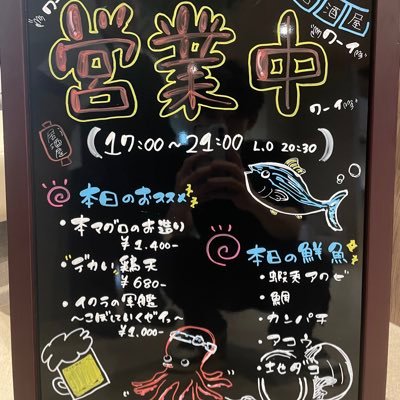 居酒屋
ワーイ
ワーイ
営業中
ワーイ
居酒屋
(17:00~21:00 L.O 20:30)
本日のおススメ
・本マグロのお造り
¥1.400-
・デカい鶏天
¥680-
・イクラの軍艦
~こぼしていくゼィ~
¥1,000-
本日の鮮魚
・蝦夷アワビ
・鯛
・カンパチ
・アコウ
・地ダコ